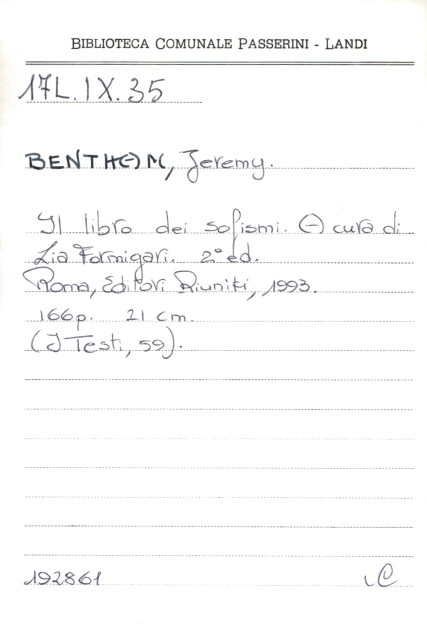 BIBLIOTECA COMUNALE PASSERINI - LANDI
17L.IX.35
BENTHAM, Jeremy.
Il libro dei sofismi. A cura di
Lia Formigari. 2° ed.
Roma, Editori Riuniti, 1993.
166p. 21 cm.
(I Testi, 59).
192861